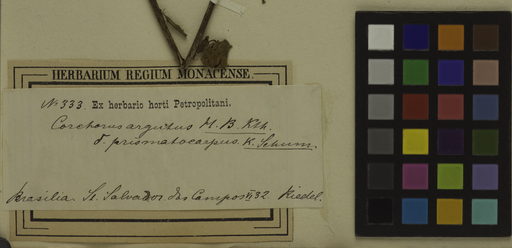 HERBARIUM REGIUM MONACENSE.
No 333. Ex herbario horti Petropolitani.
Corchorus argutus H. B. Kth.
δ. prismatocarpus K. Schum.
Brasilia. S. Salvador dos Campos 32 Riedel.